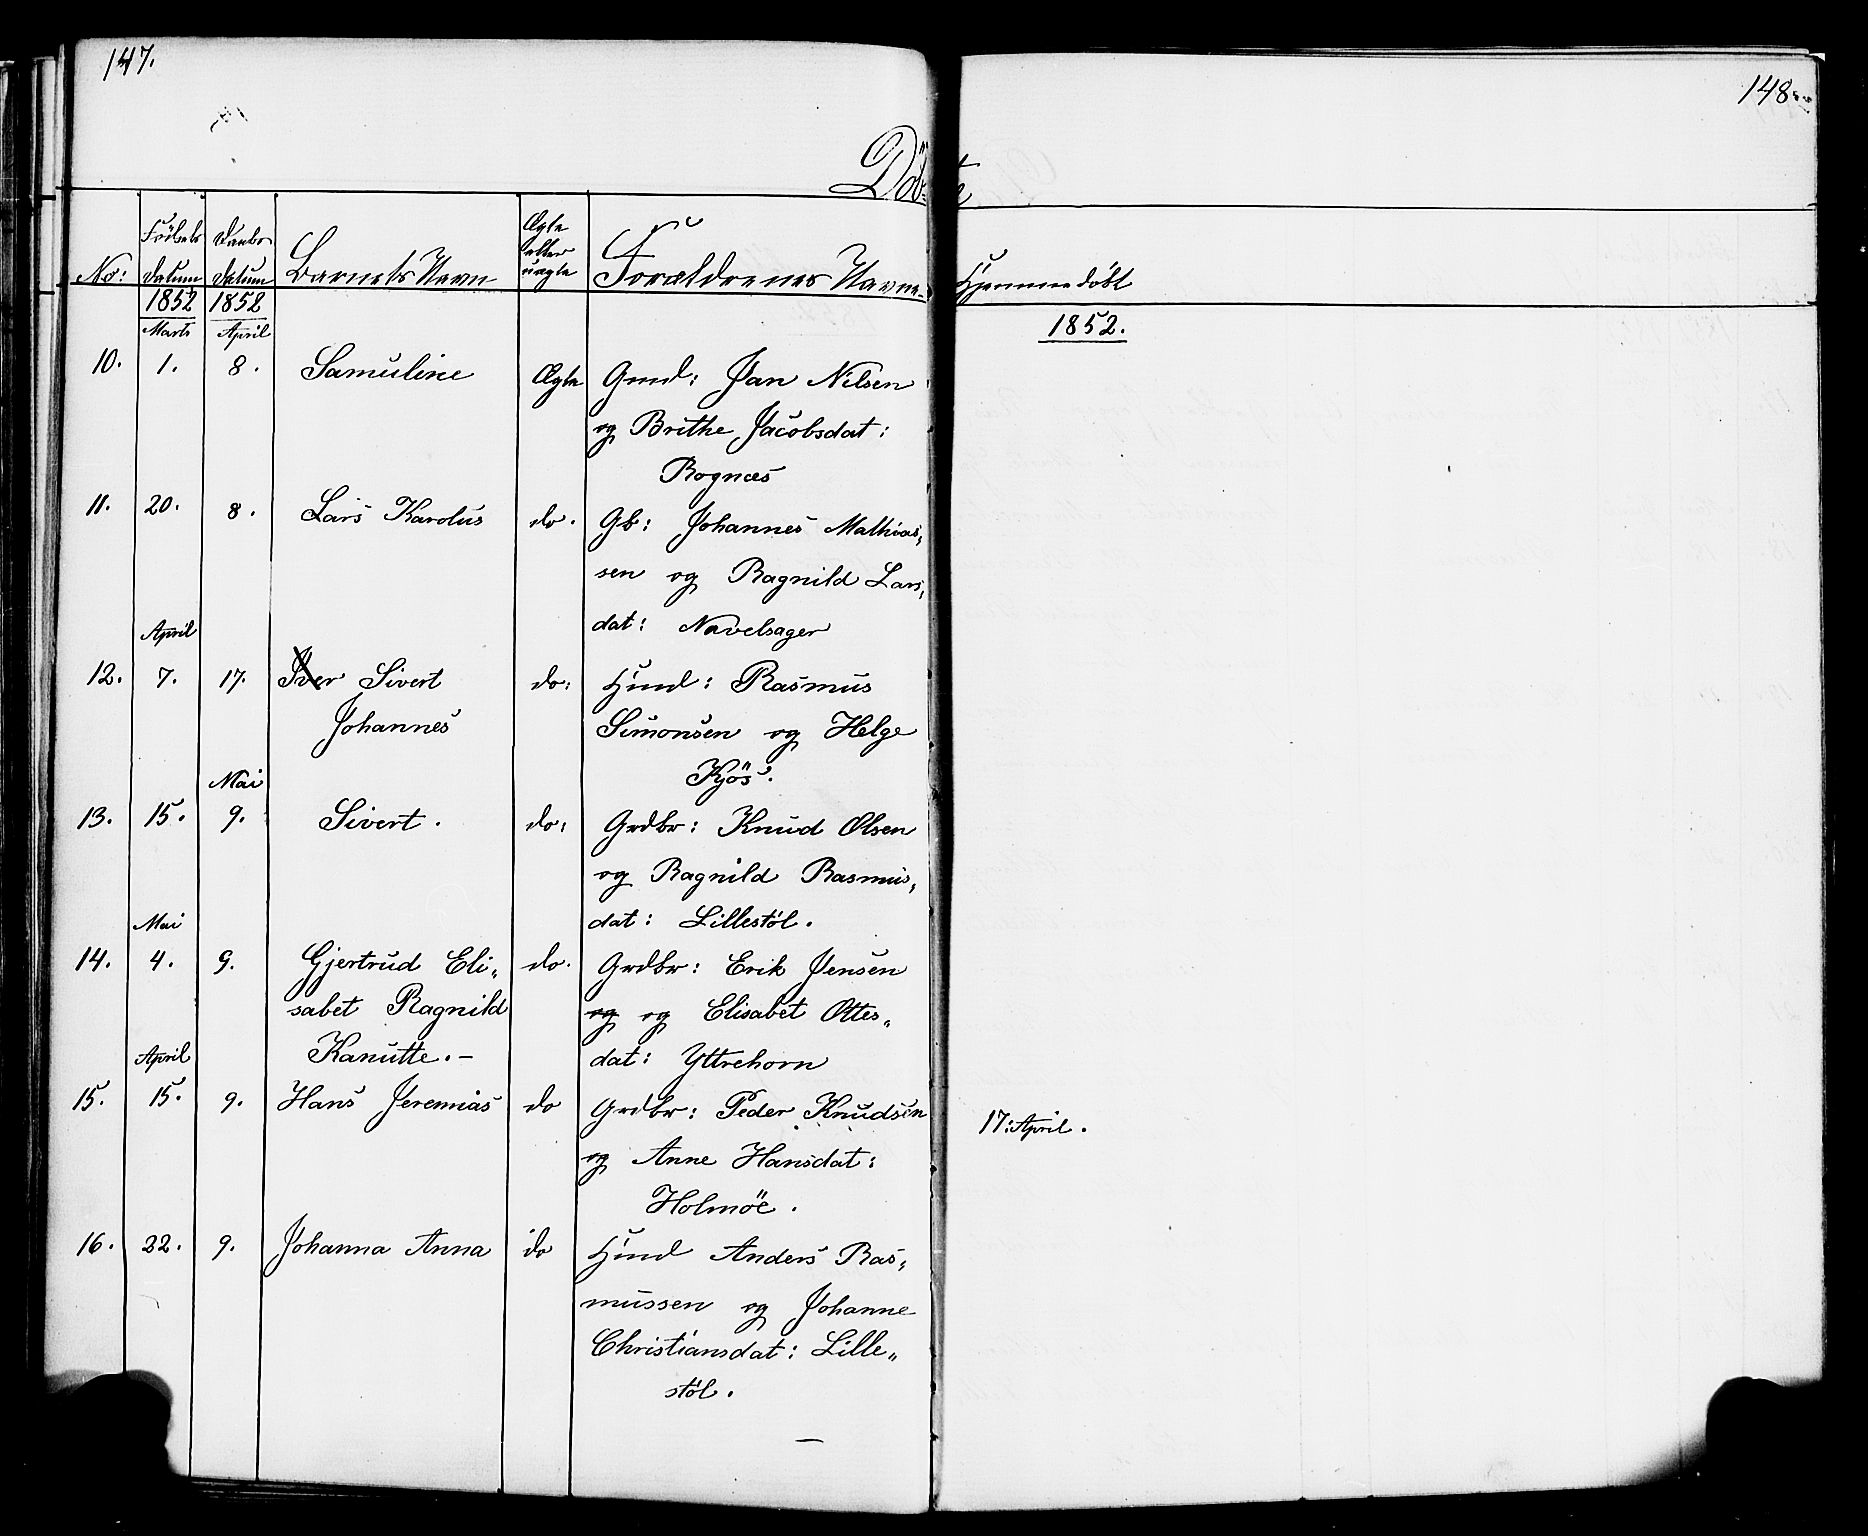 147.
148.
Döbte
No: Födsels Datum Daabs Datum Barnets Navn Ægte eller uægte Forældrenes Navne Hjemmedöbt
1852 1852 1852.
Marts April
10. 1. 8. Samuline Ægte Gmd: Jan Nilsen
og Brithe Jacobsdat:
Rognæs
11. 20. 8. Lars Karolus do. Gb: Johannes Mathias„
sen og Ragnild Lars„
dat: Navelsager
April
12. 7. 17. Iver Sivert do: Hmd: Rasmus
Johannes Simonsen og Helge
Kjös.
Mai
13. 15. 9. Sivert. do: Grdbr: Knud Olsen
og Ragnild Rasmus„
dat: Lillestöl.
Mai
14. 4. 9. Gjertrud Eli„ do. Grdbr: Erik Jensen
sabet Ragnild og og Elisabet Ottes„
Kanutte.– dat: Yttrehorn
April
15. 15. 9. Hans Jeremias do Grdbr: Peder Knudsen 17: April.
og Anne Hansdat:
Holmöe.
16. 22. 9. Johanna Anna do Hmd Anders Ras„
mussen og Johanne
Christiansdat: Lille„
stöl.